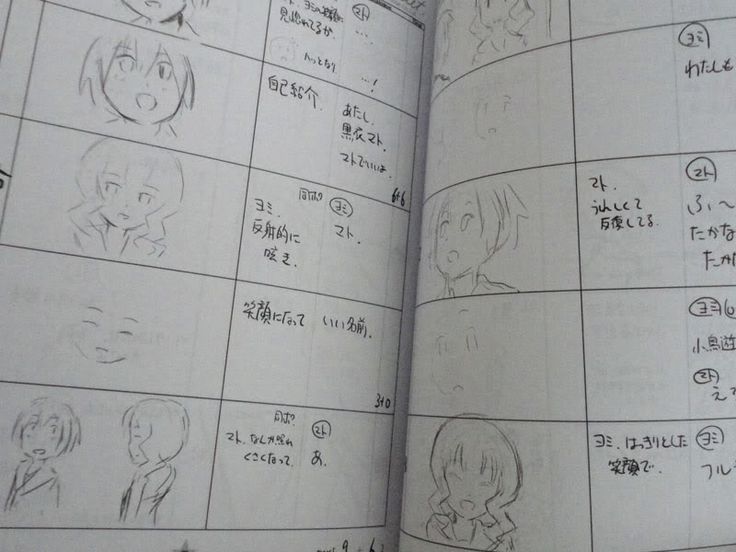 マト
見惚れてるか
…。
…!
自己紹介。
あたし、
黒衣マト。
マトでいいよ。
6+6
ヨミ、
反射的に
呟き。
同ポ?
ヨミ
マト。
笑顔になって
いい名前。
3+0
同ポ?
マト、なんか照れ
くさくなって。
マト
あ。
ヨミ
わたしも
マト、
うれしくて
反復してる。
マト
ふ〜
たかな
たかな
ヨミ
小鳥遊
マト
ヨミ、はっきりとした
笑顔で。
ヨミ
フル